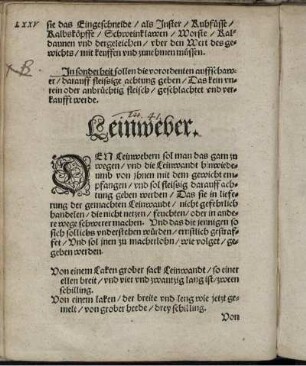 LXXV
sie das Eingeschneide / als Inster / Kuhfüsse /
Kalbsköpffe / Schweinklawen / Worste / Kal-
daunen vnd dergeleichen / vber den Wert des ge-
wichts / mit keuffen vnd zunehmen müssen.
B.
In sonderheit sollen die verordenten auffschawer /
darauff fleissige achtung geben / Das kein vn-
rein oder anbrüchtig fleisch / geschlachtet vnd ver-
kaufft werde.
Leinweber.
DEN Leinwebern sol man das garn zu
wegen / vnd die Leinwandt hinwiede-
rumb von jhnen mit dem gewicht em-
pfangen / vnd sol fleissig darauff ach-
tung geben werden / Das sie in lieffe-
rung der gemachten Leinwandt / nicht gefehrlich
handelen / die nicht netzen / feuchten / oder in ande-
re wege schwerer machen. Vnd das die jennigen so
sich sollichs vnderstehen würden / ernstlich gestraf-
fet / Vnd sol jnen zu macherlohn / wie volget / ge-
geben werden.
Von einem Laken grober sack Leinwandt / so einer
ellen breit / vnd vier vnd zwantzig lang ist / zween
schilling.
Von einem laken / der breite vnd leng wie jetzt ge-
melt / von grober hede / drey schilling.
Von